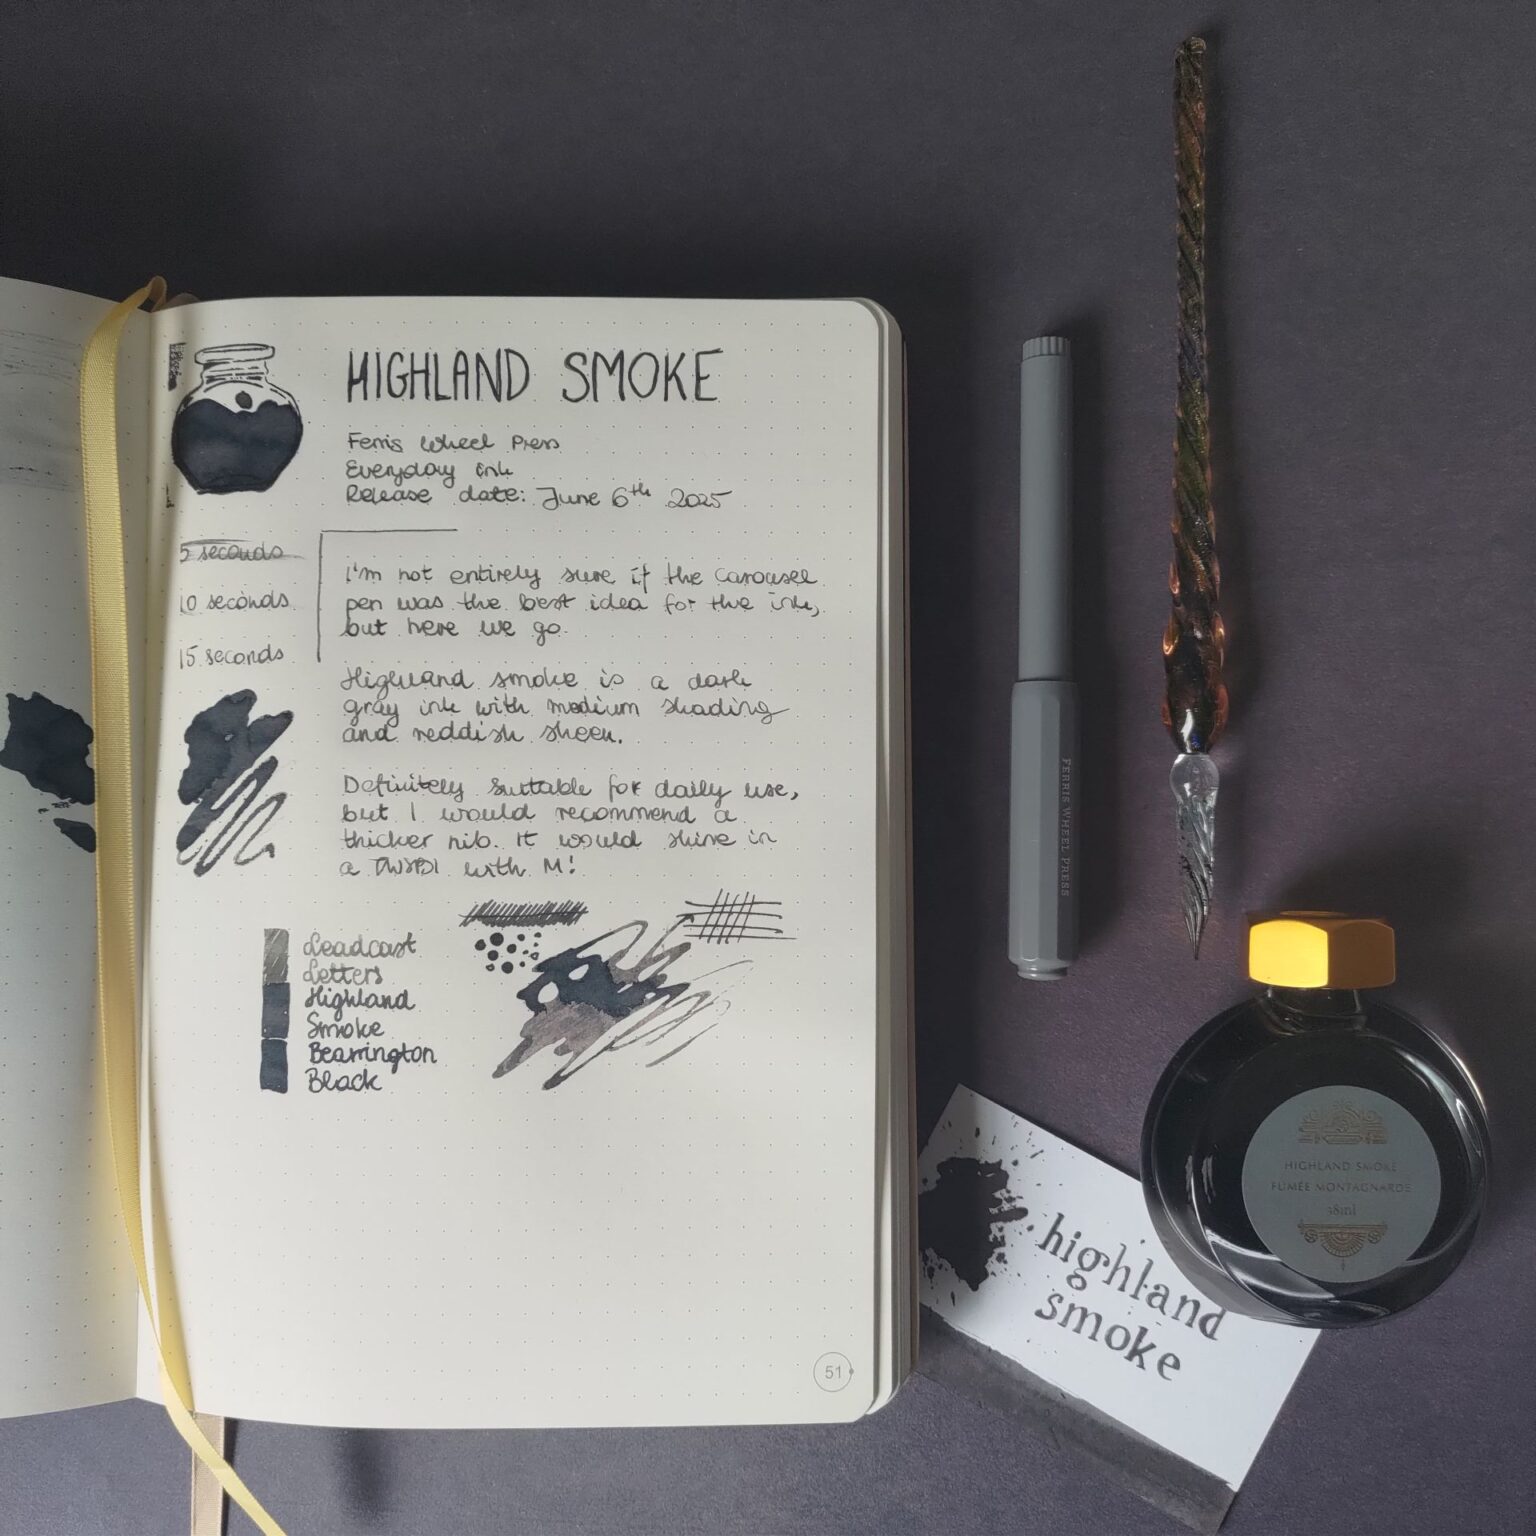 HIGHLAND SMOKE
Ferris Wheel Press
Everyday ink
Release date: June 6th 2025
5 seconds
10 seconds
15 seconds
I'm not entirely sure if the carousel
pen was the best idea for the ink,
but here we go.
Highland smoke is a dark
gray ink with medium shading
and reddish sheen.
Definitely suitable for daily use,
but I would recommend a
thicker nib. It would shine in
a TWSBI with M!
Leadcast
Letters
Highland
Smoke
Bearrington
Black
51
FERRIS WHEEL PRESS
HIGHLAND SMOKE
FUMÉE MONTAGNARDE
38ml
highland
smoke